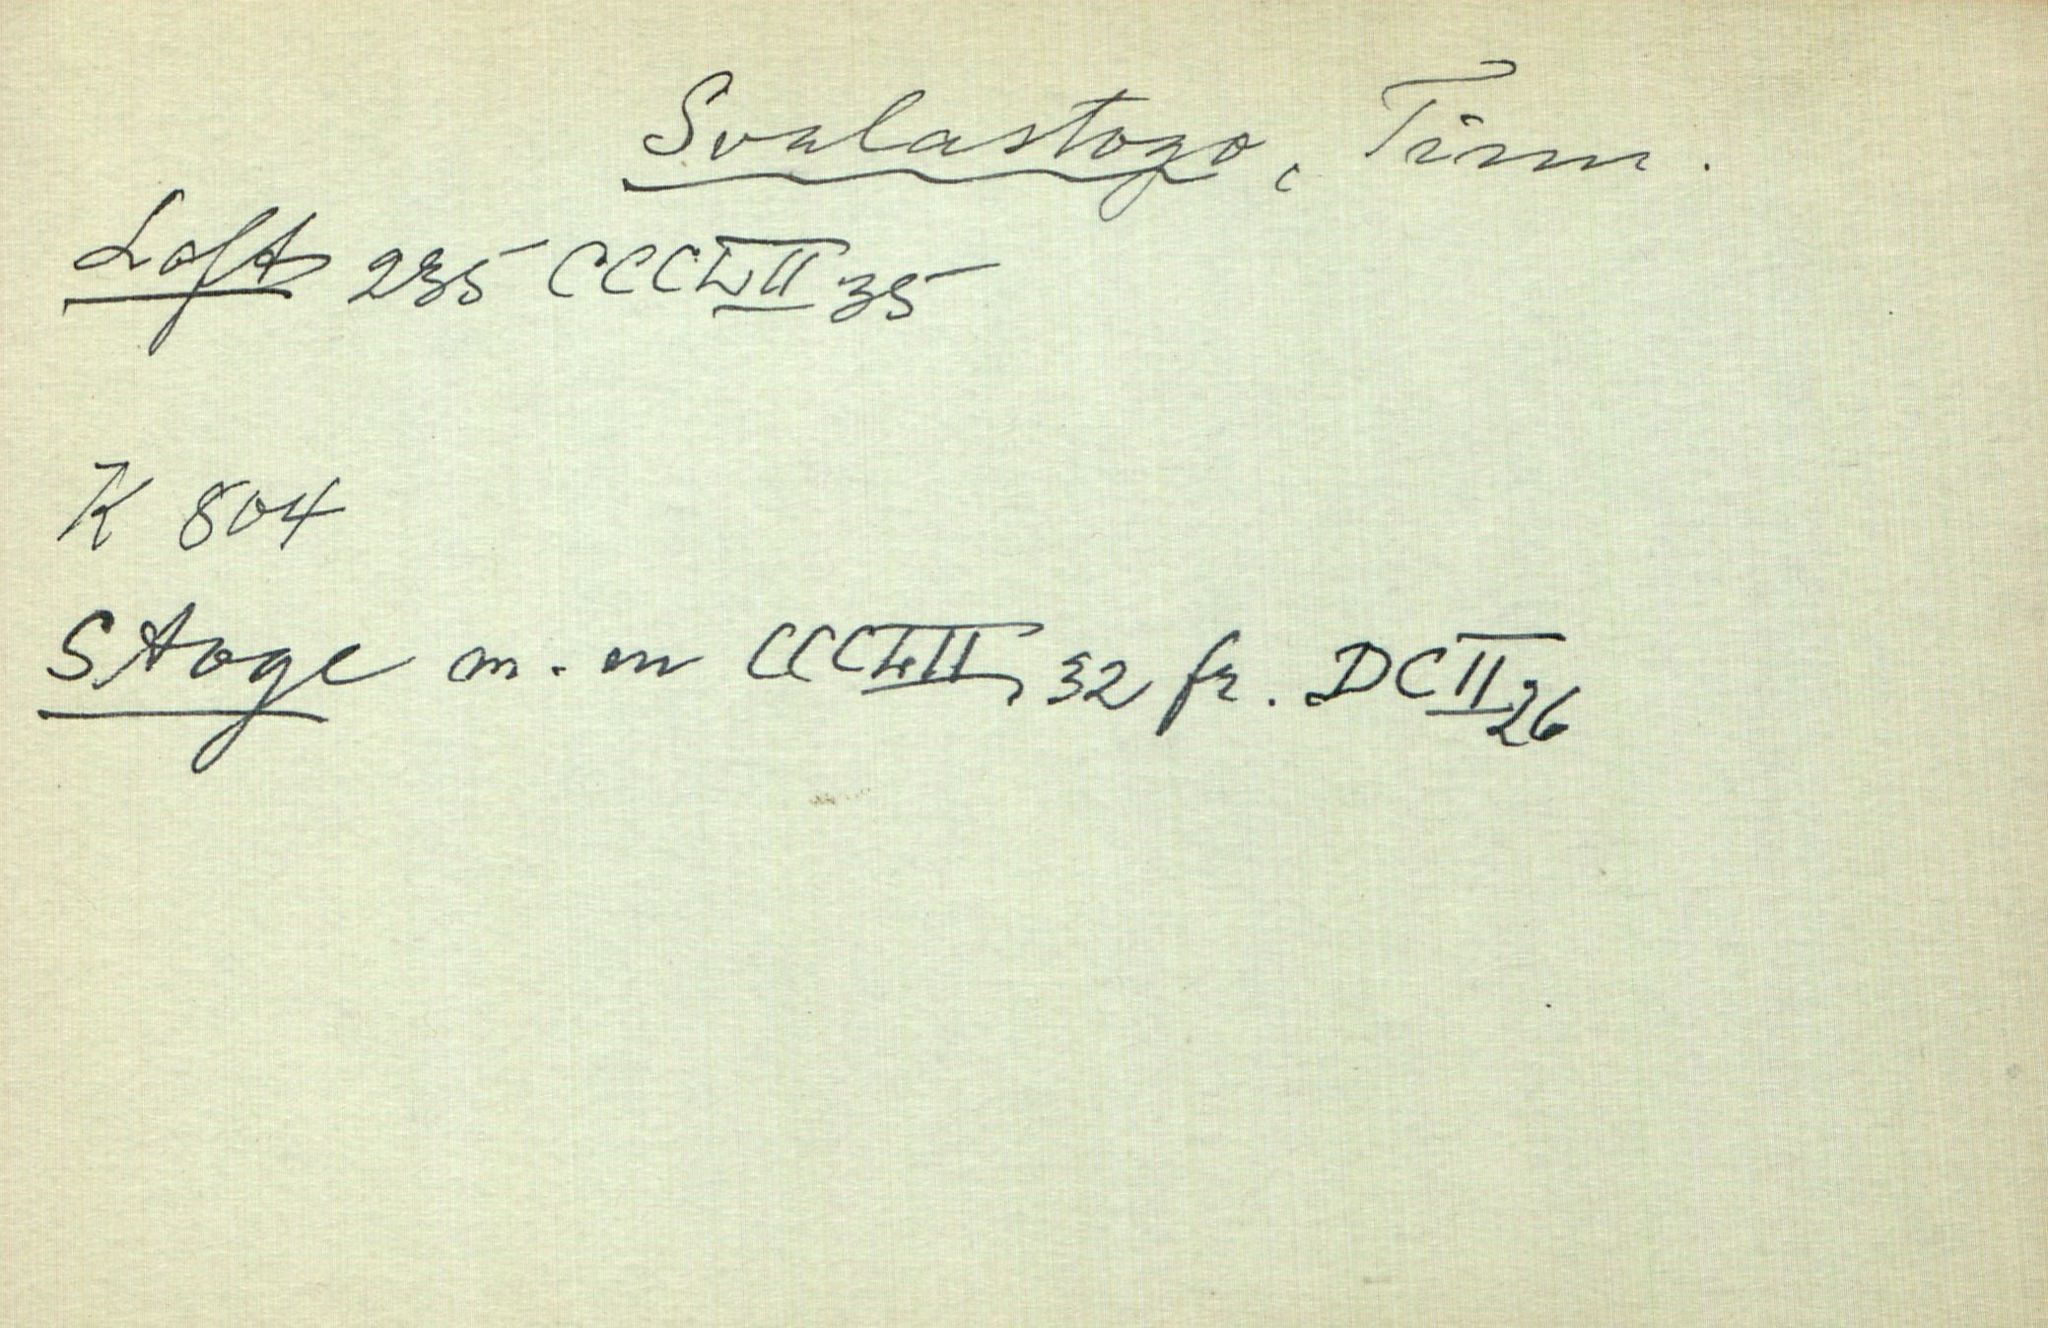 Svalastoga, Tinn.
Loft 235 CCCLII 35
K 804
Stoge m. m CCCLII, 32 fr. DCII 26